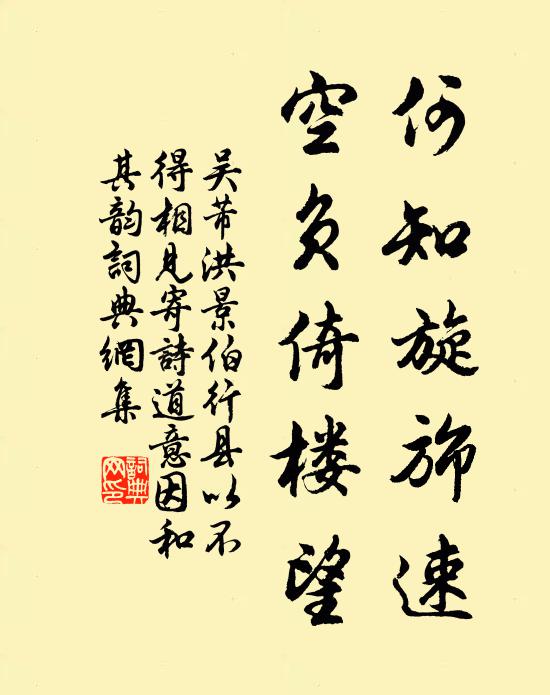 何知旋旆速
空负倚楼望
吴芾洪景伯行县以不
得相见寄詩道意因和
其韵詞典網集
詞典网印